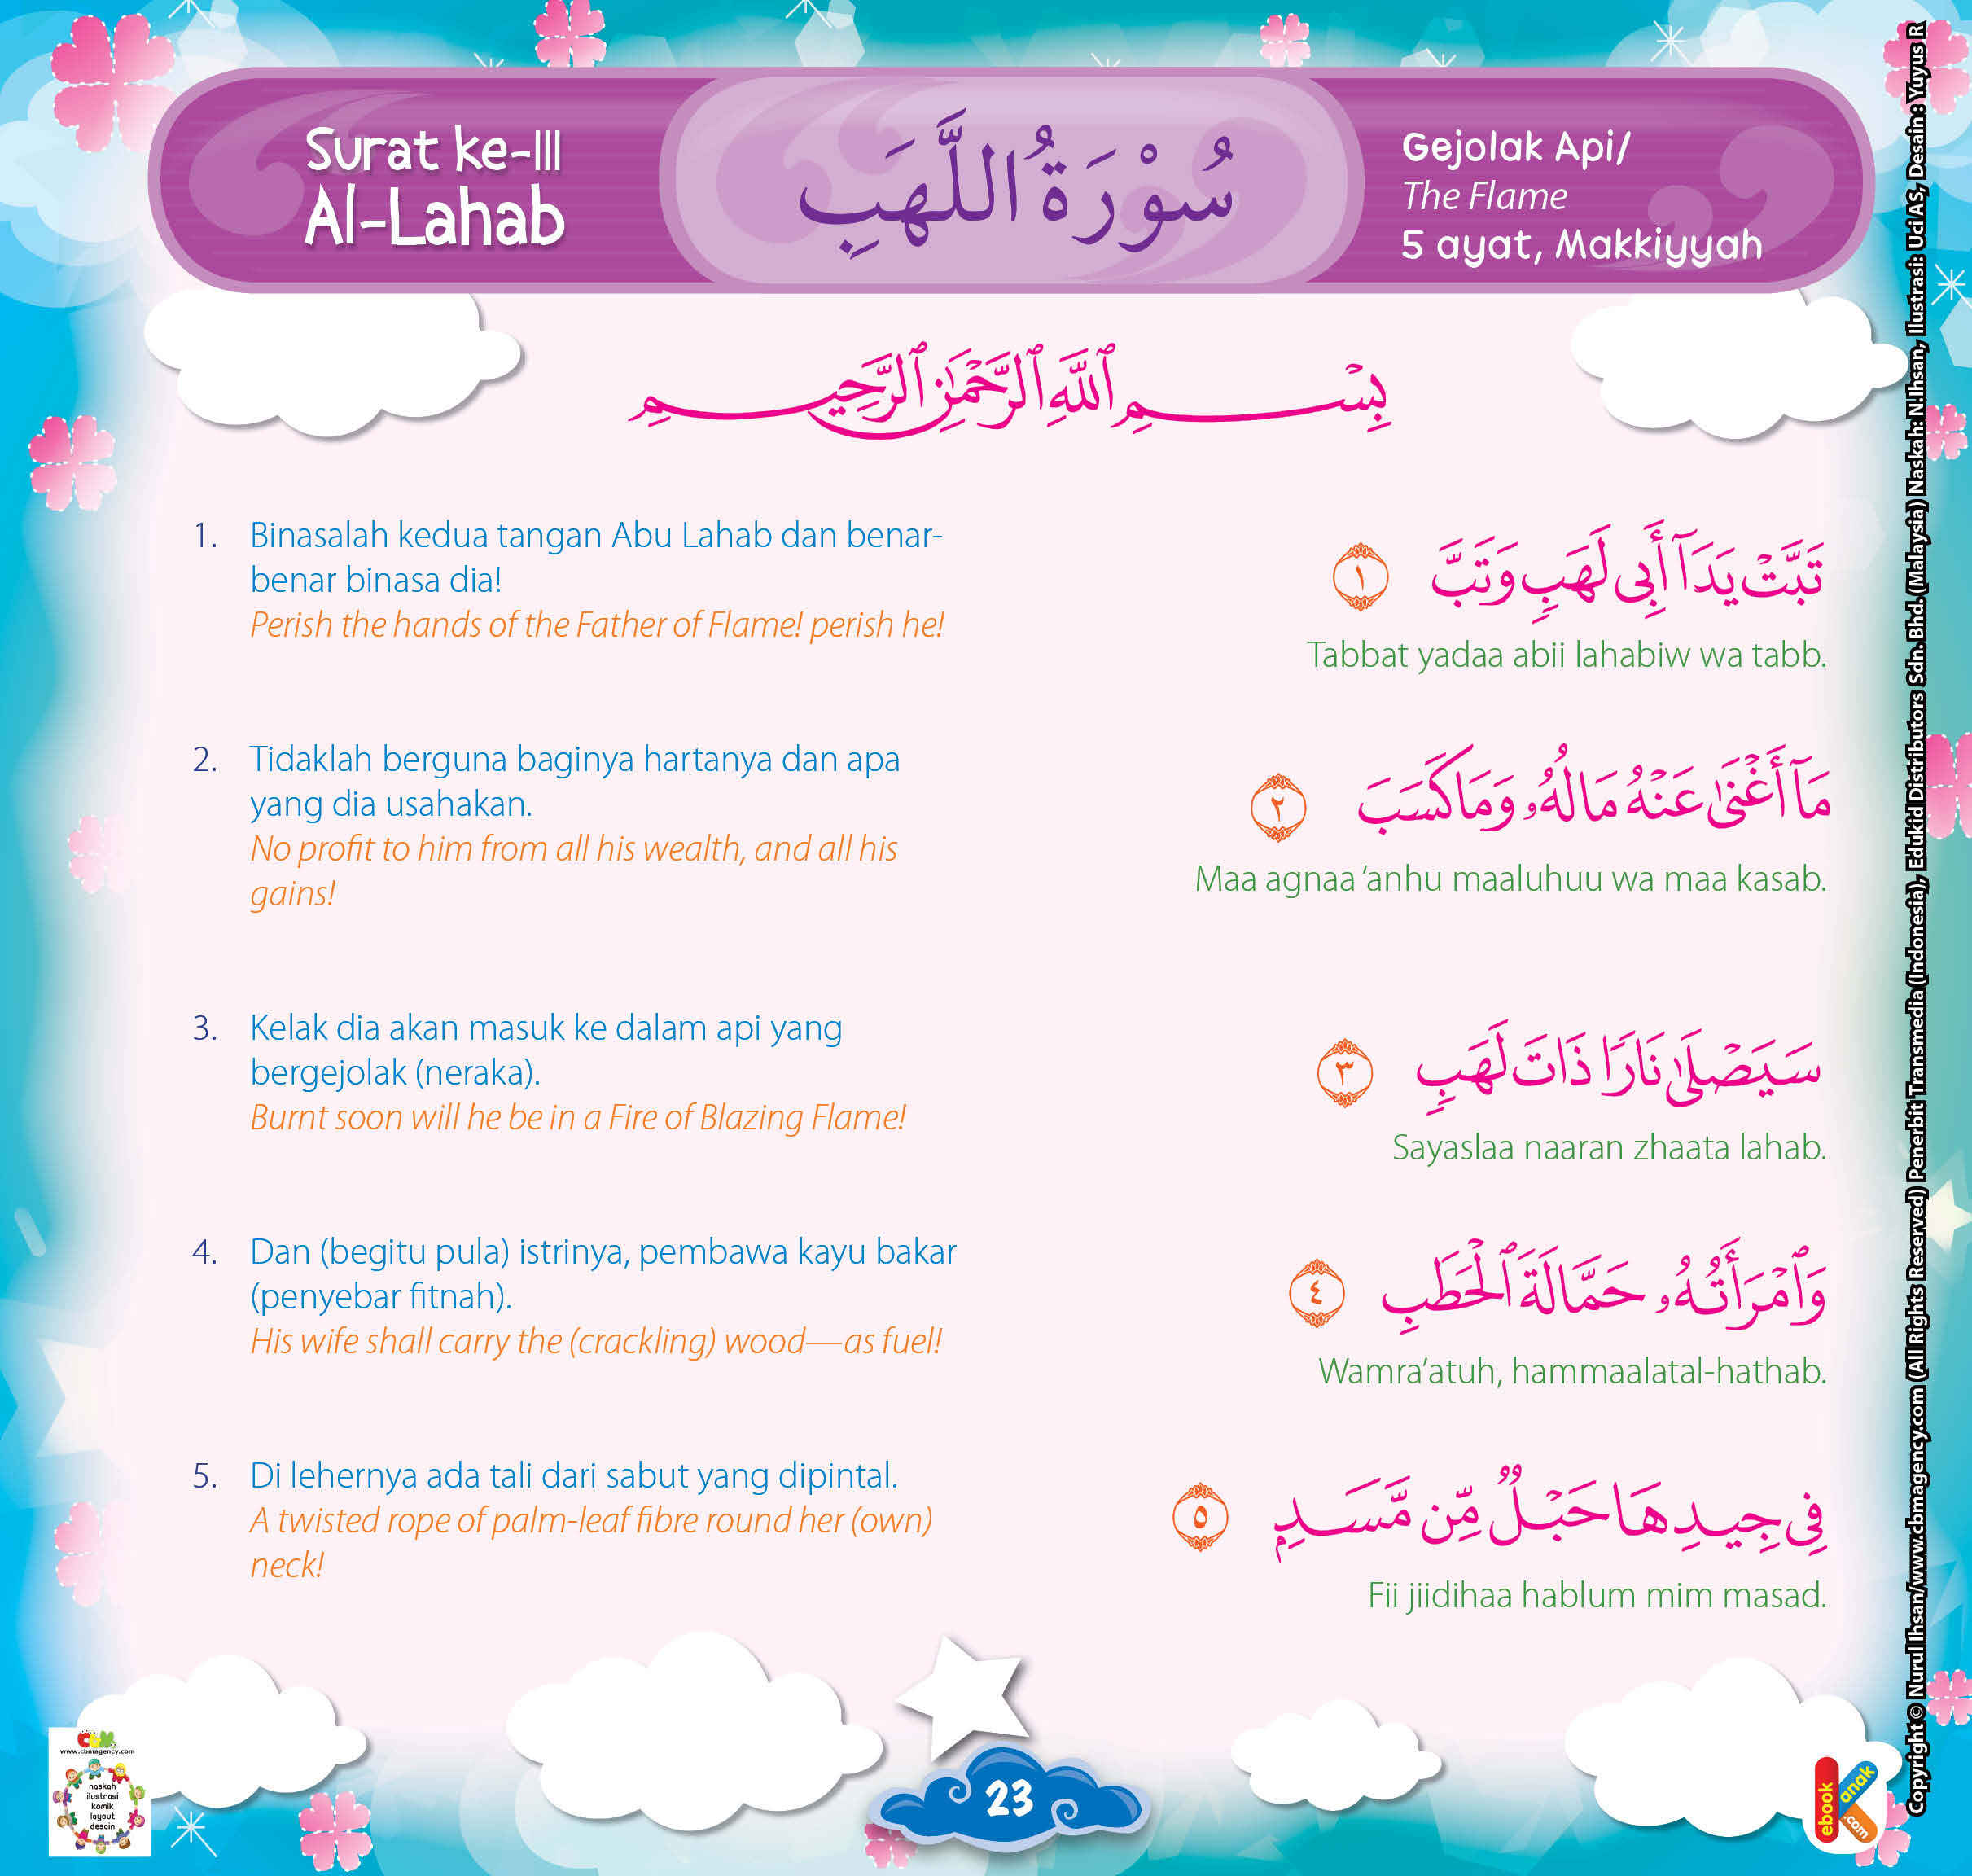 Surat ke-111
Al-Lahab
سُوْرَةُ اللَّهَبِ
Gejolak Api/
The Flame
5 ayat, Makkiyyah
بِسْمِ ٱللَّهِ ٱلرَّحْمَٰنِ ٱلرَّحِيمِ
1. Binasalah kedua tangan Abu Lahab dan benar-
benar binasa dia!
Perish the hands of the Father of Flame! perish he!
تَبَّتْ يَدَآ أَبِى لَهَبٍ وَتَبَّ ١
Tabbat yadaa abii lahabiw wa tabb.
2. Tidaklah berguna baginya hartanya dan apa
yang dia usahakan.
No profit to him from all his wealth, and all his
gains!
مَآ أَغْنَىٰ عَنْهُ مَالُهُۥ وَمَا كَسَبَ ٢
Maa agnaa ‘anhu maaluhuu wa maa kasab.
3. Kelak dia akan masuk ke dalam api yang
bergejolak (neraka).
Burnt soon will he be in a Fire of Blazing Flame!
سَيَصْلَىٰ نَارًا ذَاتَ لَهَبٍ ٣
Sayaslaa naaran zhaata lahab.
4. Dan (begitu pula) istrinya, pembawa kayu bakar
(penyebar fitnah).
His wife shall carry the (crackling) wood—as fuel!
وَٱمْرَأَتُهُۥ حَمَّالَةَ ٱلْحَطَبِ ٤
Wamra’atuh, hammaalatal-hathab.
5. Di lehernya ada tali dari sabut yang dipintal.
A twisted rope of palm-leaf fibre round her (own)
neck!
فِى جِيدِهَا حَبْلٌ مِّن مَّسَدٍۭ ٥
Fii jiidihaa hablum mim masad.
23
CBM
www.cbmagency.com
naskah
ilustrasi
komik
layout
desain
ebook
anak
.com
Copyright © Nurul Ihsan/www.cbmagency.com (All Rights Reserved) Penerbit Transmedia (Indonesia), Edukid Distributors Sdn. Bhd. (Malaysia) Naskah: N.Ihsan, Ilustrasi: Uci AS, Desain: Yuyus R